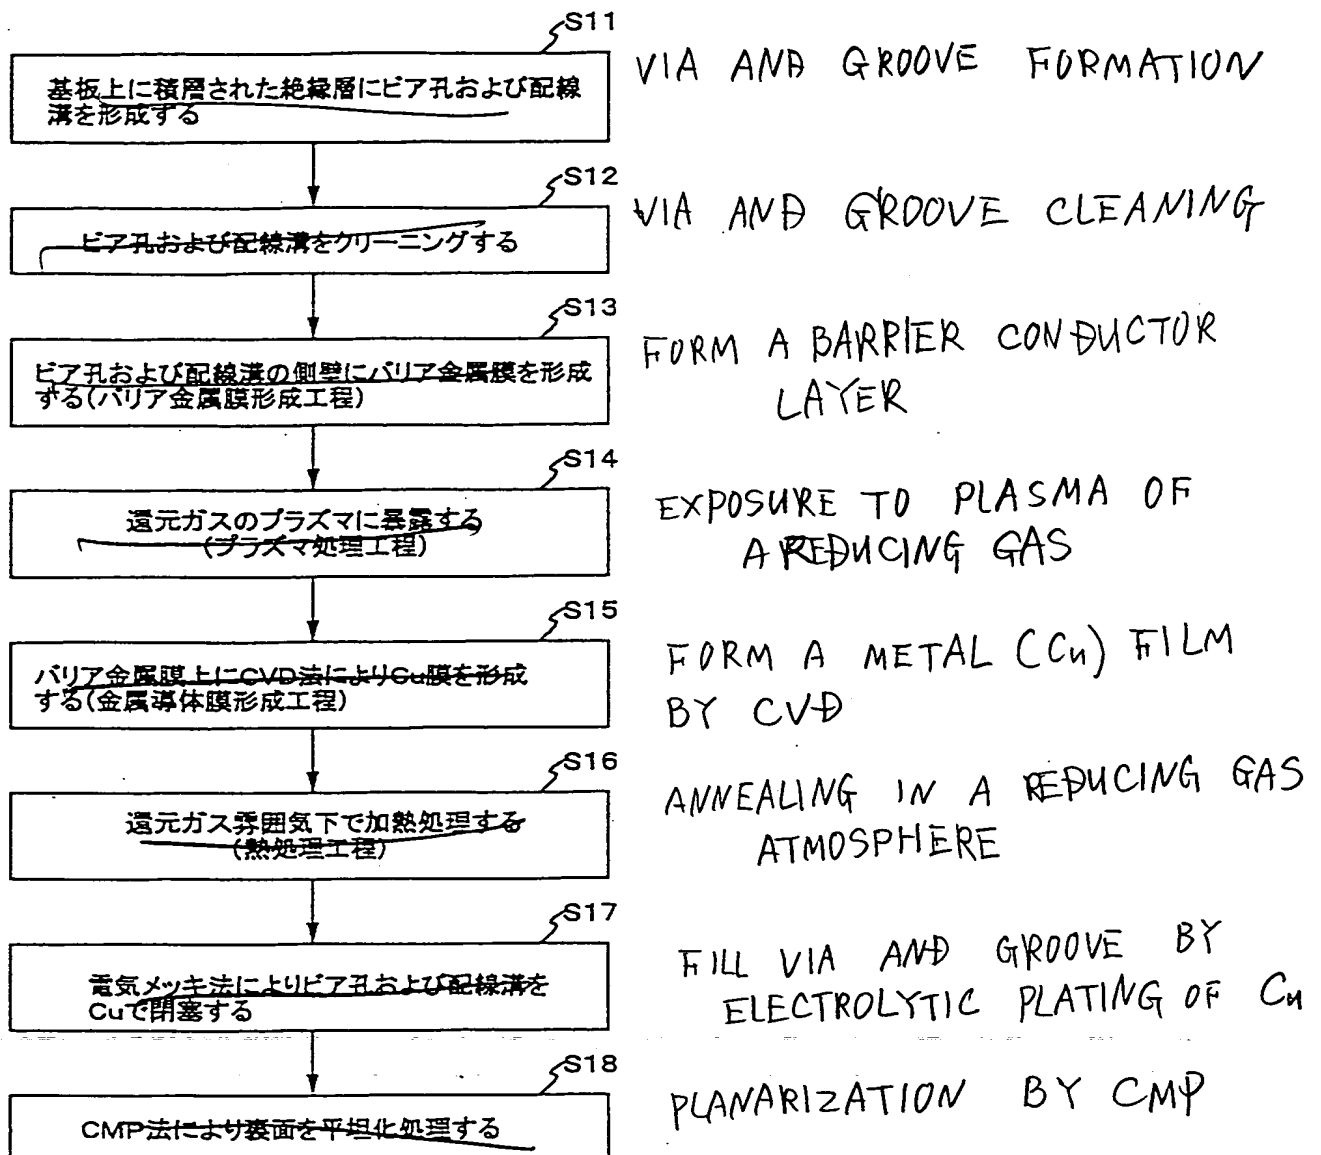 S11
基板上に積層された絶縁層にビア孔および配線
溝を形成する
VIA AND GROOVE FORMATION
S12
ビア孔および配線溝をクリーニングする
VIA AND GROOVE CLEANING
S13
ビア孔および配線溝の側壁にバリア金属膜を形成
する(バリア金属膜形成工程)
FORM A BARRIER CONDUCTOR
LAYER
S14
還元ガスのプラズマに暴露する
(プラズマ処理工程)
EXPOSURE TO PLASMA OF
A REDUCING GAS
S15
バリア金属膜上にCVD法によりCu膜を形成
する(金属導体膜形成工程)
FORM A METAL (Cu) FILM
BY CVD
S16
還元ガス雰囲気下で加熱処理する
(熱処理工程)
ANNEALING IN A REDUCING GAS
ATMOSPHERE
S17
電気メッキ法によりビア孔および配線溝を
Cuで閉塞する
FILL VIA AND GROOVE BY
ELECTROLYTIC PLATING OF Cu
S18
CMP法により表面を平坦化処理する
PLANARIZATION BY CMP